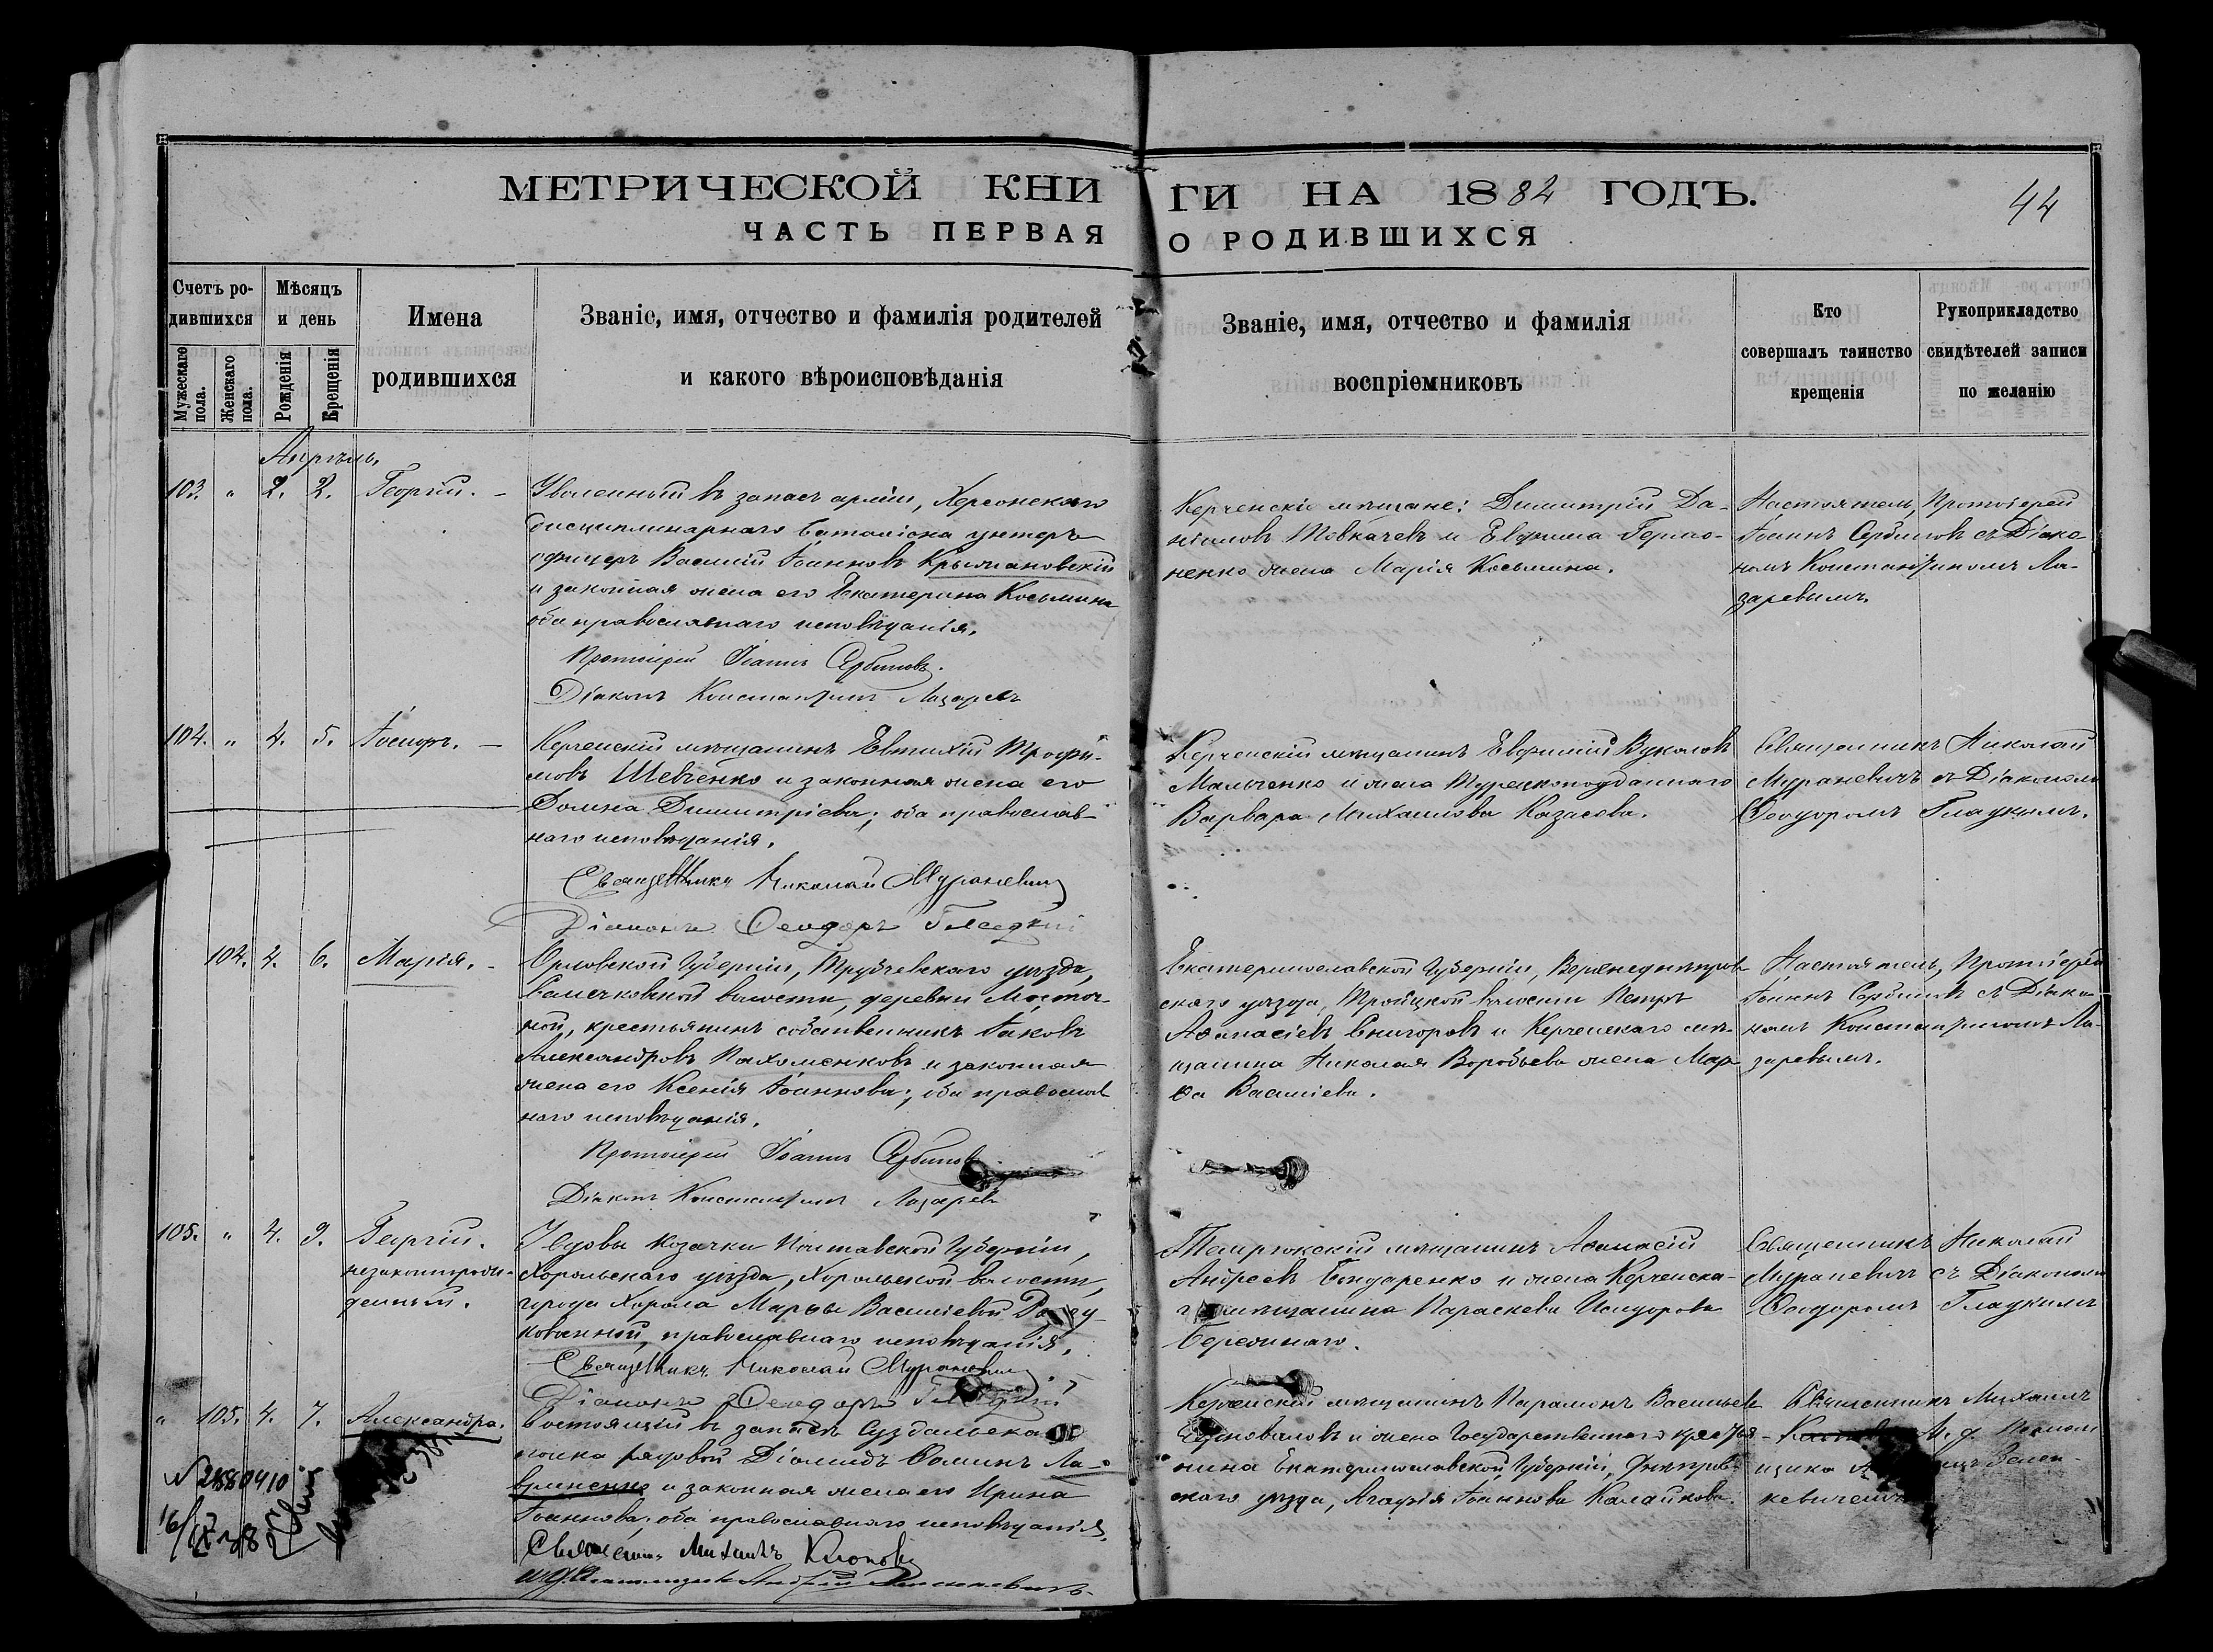 МЕТРИЧЕСКОЙ КНИГИ НА 1882 ГОДЪ.
44
ЧАСТЬ ПЕРВАЯ О РОДИВШИХСЯ
Счетъ ро-
дившихся
Мужескаго пола.
Женскаго пола.
Мѣсяцъ
и день
Рожденія
Крещенія
Имена
родившихся
Званіе, имя, отчество и фамилія родителей
и какого вѣроисповѣданія
Званіе, имя, отчество и фамилія
воспріемниковъ
Кто
совершалъ таинство
крещенія
Рукоприкладство
свидѣтелей записи
по желанію
Апрѣль.
103. " 2. 2. Георгій. –
Уволенный въ запасъ арміи, Херсонскаго
дисциплинарнаго баталіона унтеръ
офицеръ Василій Іоанновъ Крыжановскій
и законная жена его Екатерина Косьмина
оба православнаго исповѣданія.
Протоіерей Іоаннъ Сербиновъ.
Діаконъ Константинъ Лазаревъ
Керченскіе мѣщане: Димитрій Да-
ніиловъ Товкачевъ и Евфима Гермо-
ненко жена Марія Косьмина.
Настоятель, Протоіерей
Іоаннъ Сербиновъ съ Діако
номъ Константиномъ Ла-
заревымъ.
104. " 4. 5. Іосифъ. –
Керченскій мѣщанинъ Евтихій Трофи-
мовъ Шевченко и законная жена его
Домна Димитріева; оба православ-
наго исповѣданія.
Священникъ Николай Мураневичъ
Діаконъ Ѳеодоръ Гладкій
Керченскій мѣщанинъ Евфимій Вуколовъ
Мальченко и жена Турецкоподданнаго
Варвара Михаилова Казасова.
Священникъ Николай
Мураневичъ съ Діакономъ
Ѳеодоромъ Гладкимъ.
104. 4. 6. Марія. –
Орловской Губерніи, Трубчевскаго уѣзда,
волости, деревни Мосточ-
ной, крестьянинъ собственникъ Іаковъ
Александровъ Пахоменковъ и законная
жена его Ксенія Іоаннова; оба православ
наго исповѣданія.
Протоіерей Іоаннъ Сербиновъ
Діаконъ Константинъ Лазаревъ
Екатеринославской Губерніи, Верхнеднѣпров
скаго уѣзда, Троицкой волости Петръ
Аѳанасіевъ Снигоровъ и Керченскаго мѣ-
щанина Николая Воробьева жена Мар-
ѳа Василіева.
Настоятель, Протоіерей
Іоаннъ Сербиновъ съ Діако-
номъ Константиномъ Ла-
заревымъ.
105. " 4. 9. Георгій.
незаконнорож-
денный.
У вдовы козачки Полтавской Губерніи,
Хорольскаго уѣзда, Хорольской волости,
города Хорола Марѳы Василіевой
православнаго исповѣданія.
Священникъ Николай Мураневичъ
Діаконъ Ѳеодоръ Гладкій
Темрюкскій мѣщанинъ Аѳанасій
Андреевъ Бондаренко и жена Керченска-
го мѣщанина Параскева Исидорова
Бережнаго.
Священникъ Николай
Мураневичъ съ Діакономъ
Ѳеодоромъ Гладкимъ
" 105. 4. 7. Александра.
Состоящій въ запасѣ Суздальскаго
полка рядовой Діомидъ Ѳоминъ Ла-
и законная жена его Ирина
Іоаннова; оба православнаго исповѣданія.
Священникъ Михаилъ Клопов
Керченскій мѣщанинъ Парамонъ Васильевъ
и жена Государственнаго крестья-
нина Екатеринославской Губерніи, Днѣпров-
скаго уѣзда, Агафія Іоаннова Калашкова.
Священникъ Михаилъ
И. д. Псалом
щика
кевичемъ